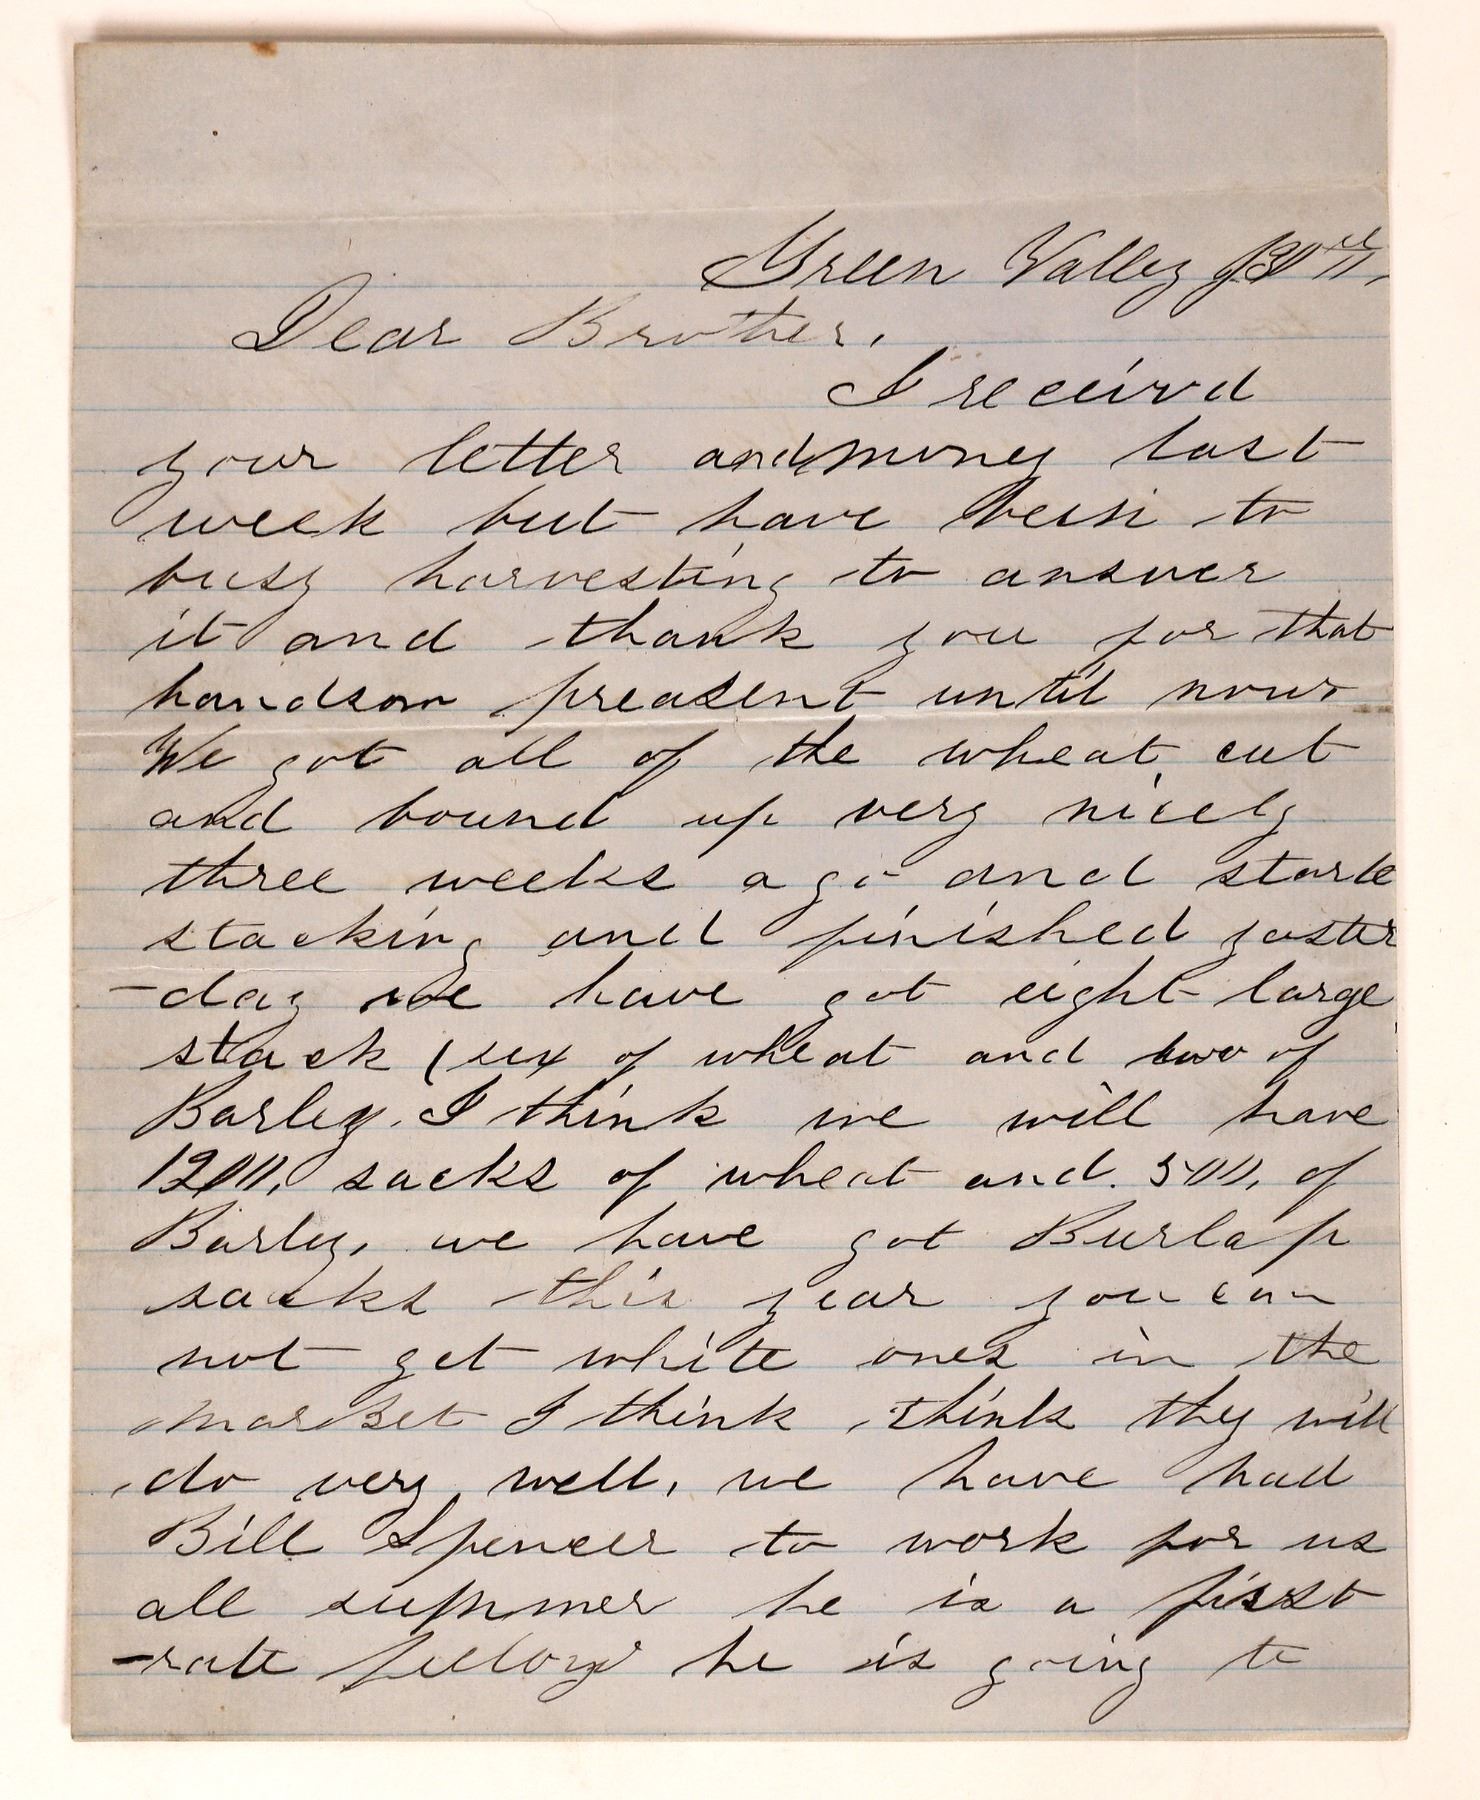 Green Valley
Dear Brother.
I receivd
your letter and money last
week but have bein to
busy harvesting to answer
it and thank you for that
handsom preasent until now
We got all of the wheat cut
and bound up very nicely
three weeks ago and starte
stacking and finished yaster
-day we have got eight large
stack (six of wheat and two of
Barley. I think we will have
1200, sacks of wheat and. 500, of
Barley, we have got Burlap
sacks this year you can
not get white ones in the
market I think think they will
do very well, we have had
Bill Spencer to work for us
all summer he is a first
-rate fellow he is going to